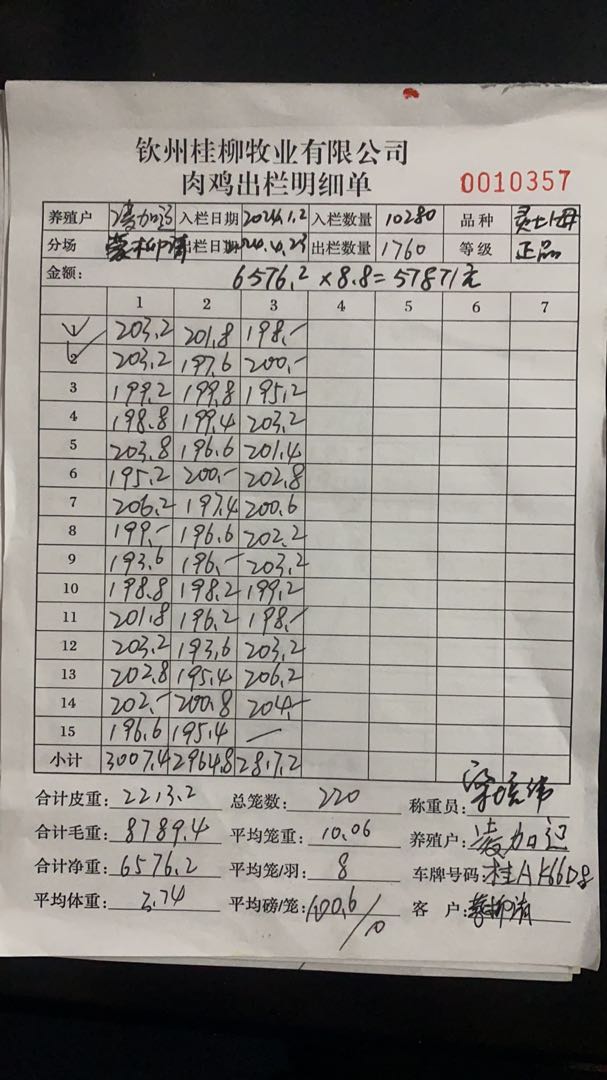 钦州桂柳牧业有限公司
肉鸡出栏明细单 0010357
养殖户 凌加运 入栏日期 2024.1.2 入栏数量 10280 品种 灵士1母
分场 出栏日期 2024.4.23 出栏数量 1760 等级 正品
金额: 6576.2×8.8=57871元
1 2 3 4 5 6 7
1 203.2 201.8 198.-
2 203.2 197.6 200.-
3 199.2 199.8 195.2
4 198.8 199.4 203.2
5 203.8 196.6 201.4
6 195.2 200.- 202.8
7 206.2 197.4 200.6
8 199.- 196.6 202.2
9 193.6 196.- 203.2
10 198.8 198.2 199.2
11 201.8 196.2 198.-
12 203.2 193.6 203.2
13 202.8 195.4 206.2
14 202.- 200.8 204.-
15 196.6 195.4 —
小计 3007.4 2964.8 2817.2
合计皮重: 2213.2 总笼数: 220 称重员:
合计毛重: 8789.4 平均笼重: 10.06 养殖户: 凌加运
合计净重: 6576.2 平均笼/羽: 8 车牌号码: 桂AK66D8
平均体重: 3.74 平均磅/笼: 100.6/10 客 户: